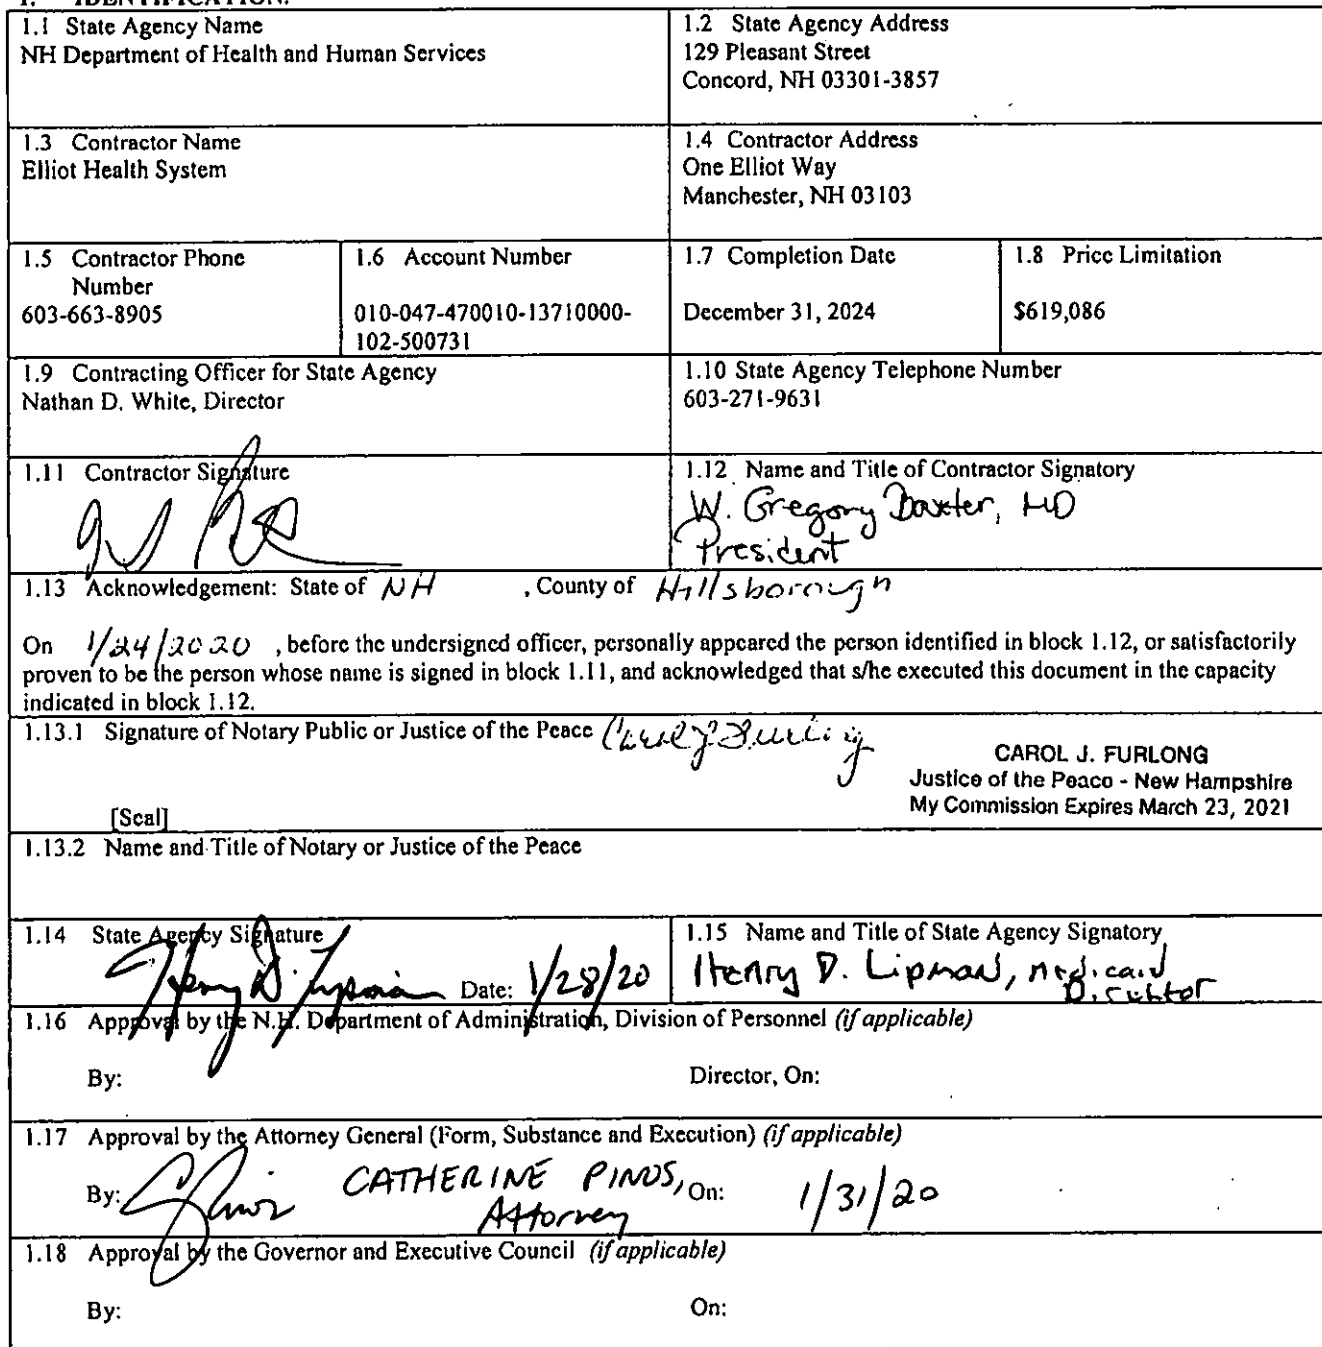 1. IDENTIFICATION.
1.1 State Agency Name
NH Department of Health and Human Services
1.2 State Agency Address
129 Pleasant Street
Concord, NH 03301-3857
1.3 Contractor Name
Elliot Health System
1.4 Contractor Address
One Elliot Way
Manchester, NH 03103
1.5 Contractor Phone
Number
603-663-8905
1.6 Account Number
010-047-470010-13710000-
102-500731
1.7 Completion Date
December 31, 2024
1.8 Price Limitation
$619,086
1.9 Contracting Officer for State Agency
Nathan D. White, Director
1.10 State Agency Telephone Number
603-271-9631
1.11 Contractor Signature
1.12 Name and Title of Contractor Signatory
W. Gregory Baxter, MD
President
1.13 Acknowledgement: State of NH , County of Hillsborough
On 1/24/2020 , before the undersigned officer, personally appeared the person identified in block 1.12, or satisfactorily
proven to be the person whose name is signed in block 1.11, and acknowledged that s/he executed this document in the capacity
indicated in block 1.12.
1.13.1 Signature of Notary Public or Justice of the Peace Carol J. Furlong
CAROL J. FURLONG
Justice of the Peace - New Hampshire
My Commission Expires March 23, 2021
[Seal]
1.13.2 Name and Title of Notary or Justice of the Peace
1.14 State Agency Signature
Henry D. Lipman Date: 1/28/20
1.15 Name and Title of State Agency Signatory
Henry D. Lipman, Medicaid
Director
1.16 Approval by the N.H. Department of Administration, Division of Personnel (if applicable)
By: Director, On:
1.17 Approval by the Attorney General (Form, Substance and Execution) (if applicable)
By: CATHERINE PINOS, On: 1/31/20
Attorney
1.18 Approval by the Governor and Executive Council (if applicable)
By: On: